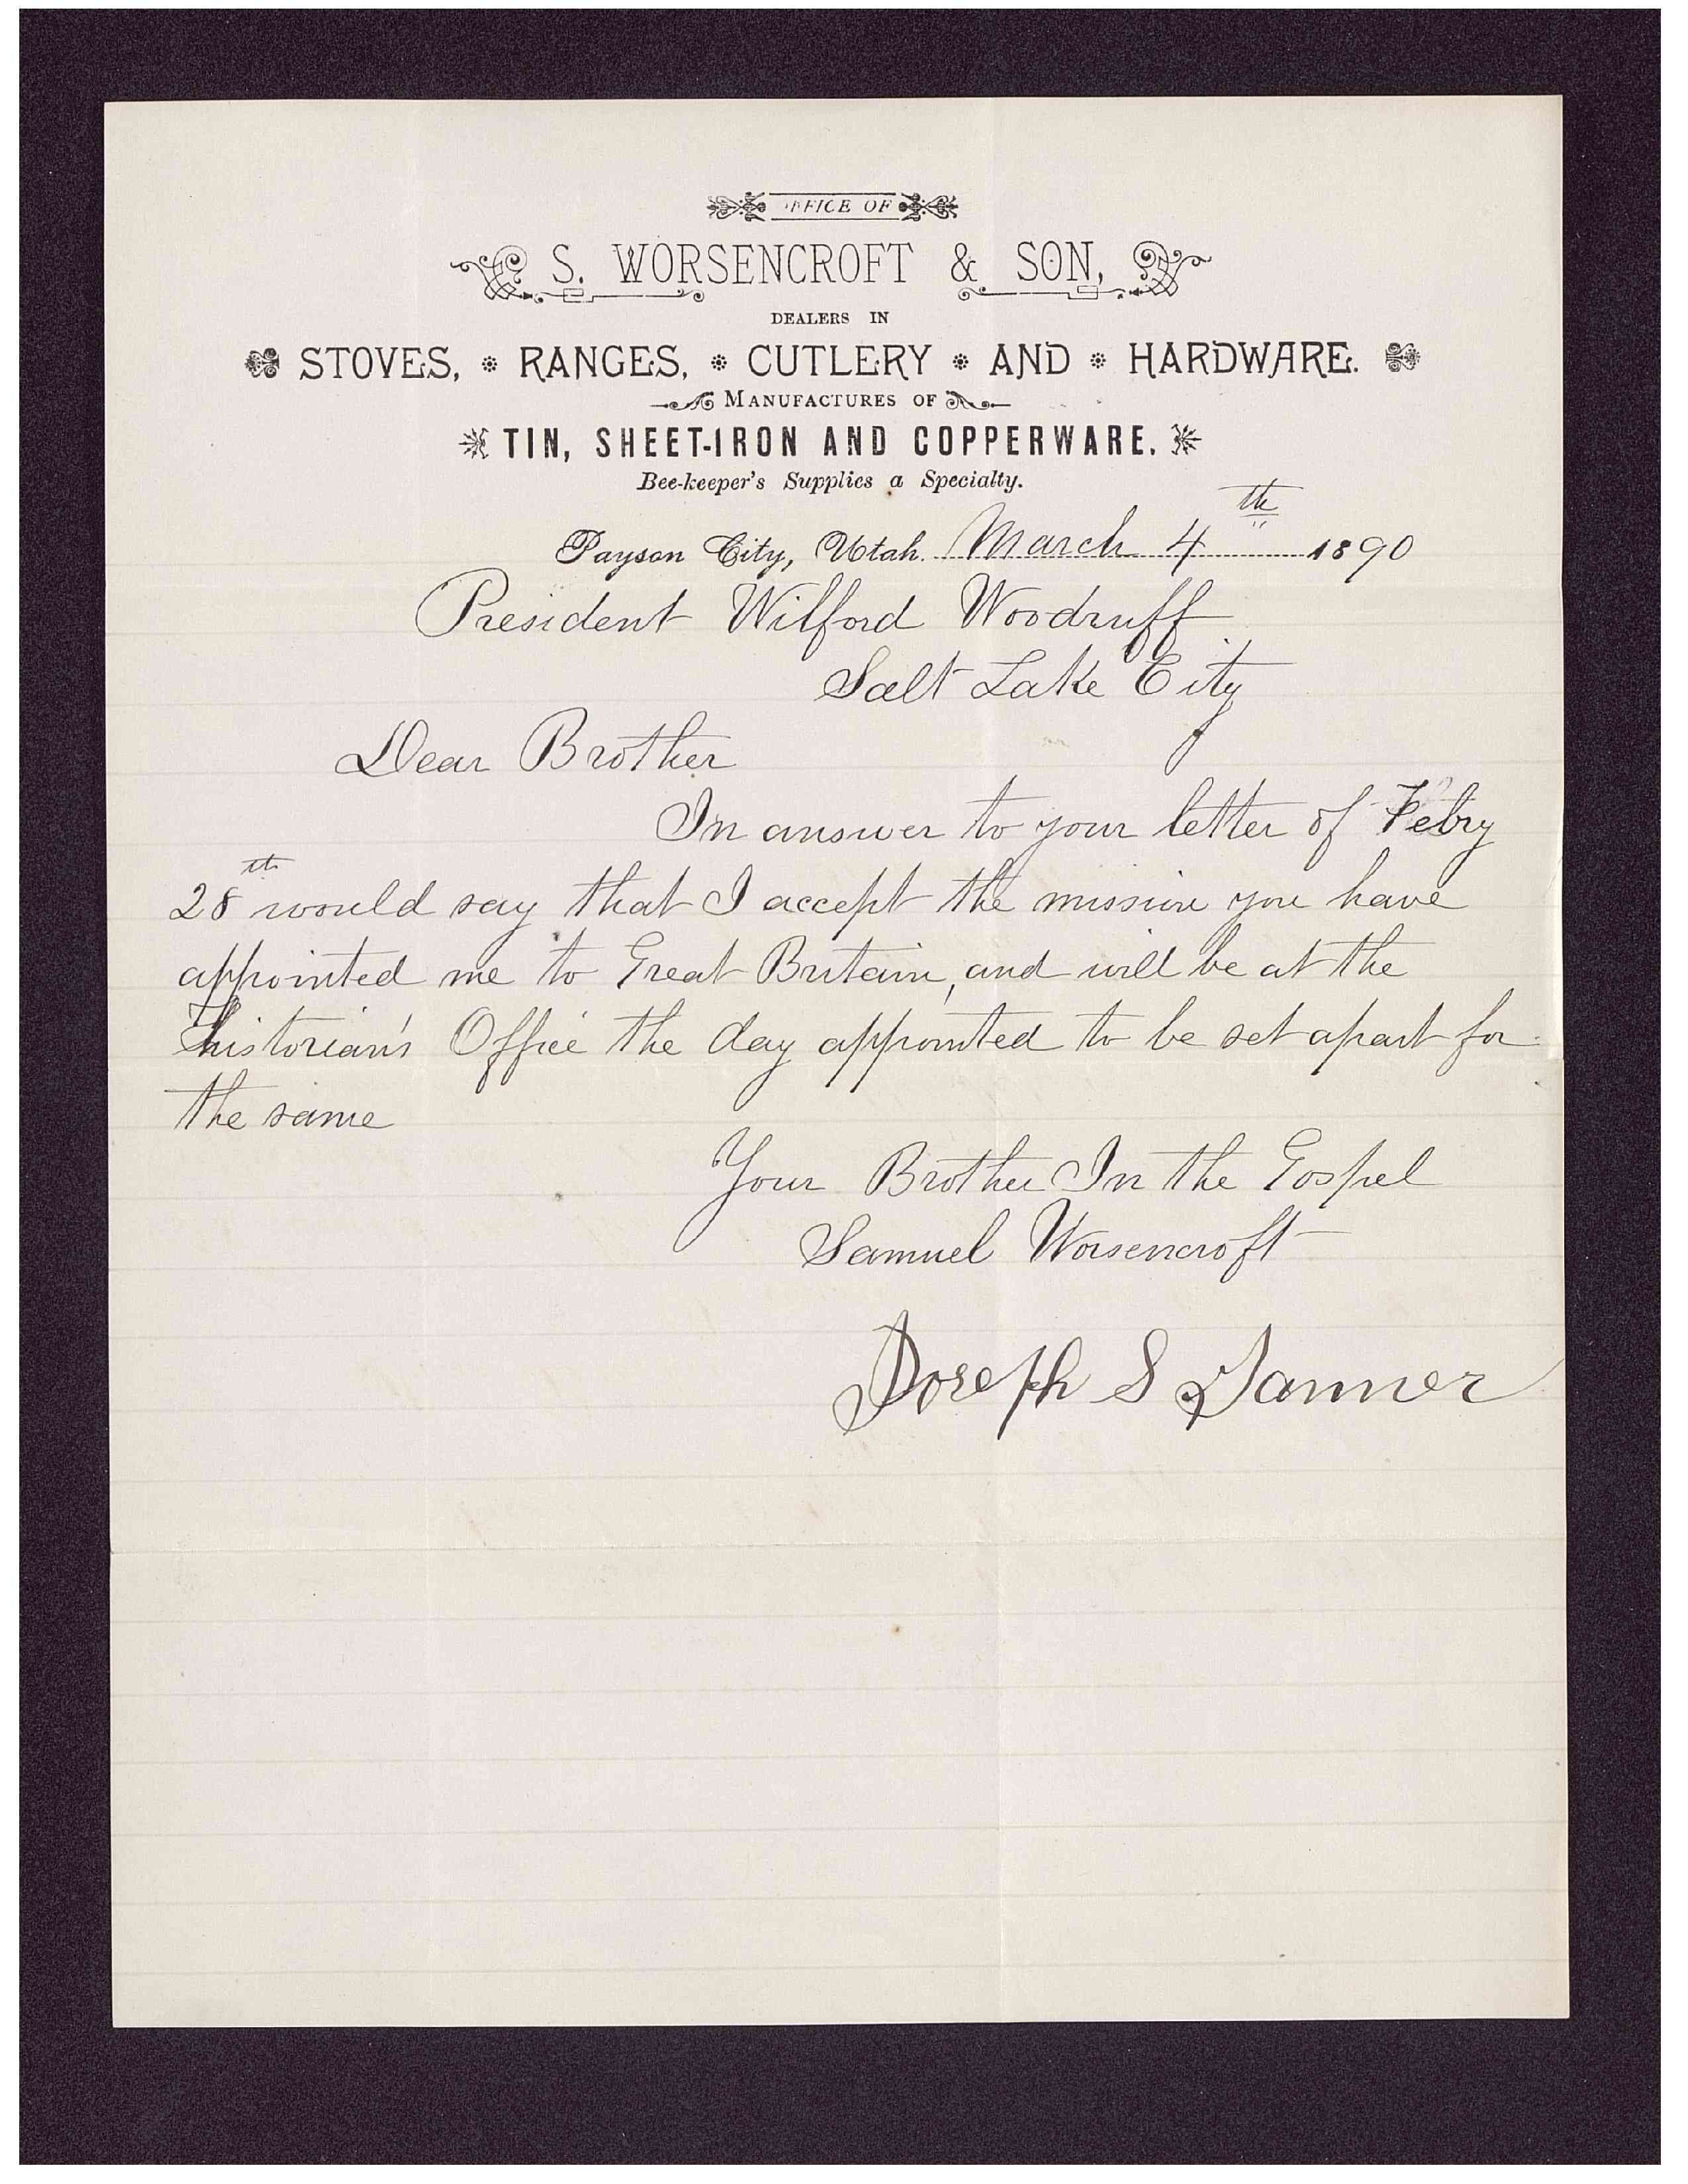 OFFICE OF
S. WORSENCROFT & SON,
DEALERS IN
STOVES, RANGES, CUTLERY AND HARDWARE.
MANUFACTURES OF
TIN, SHEET-IRON AND COPPERWARE.
Bee-keeper's Supplies a Specialty.
Payson City, Utah. March 4th 1890
President Wilford Woodruff
Salt Lake City
Dear Brother
In answer to your letter of Febry
28th would say that I accept the mission you have
appointed me to Great Britain, and will be at the
historian's Office the day appointed to be set apart for
the same
Your Brother In the Gospel
Samuel Worsencroft
Joseph S Tanner